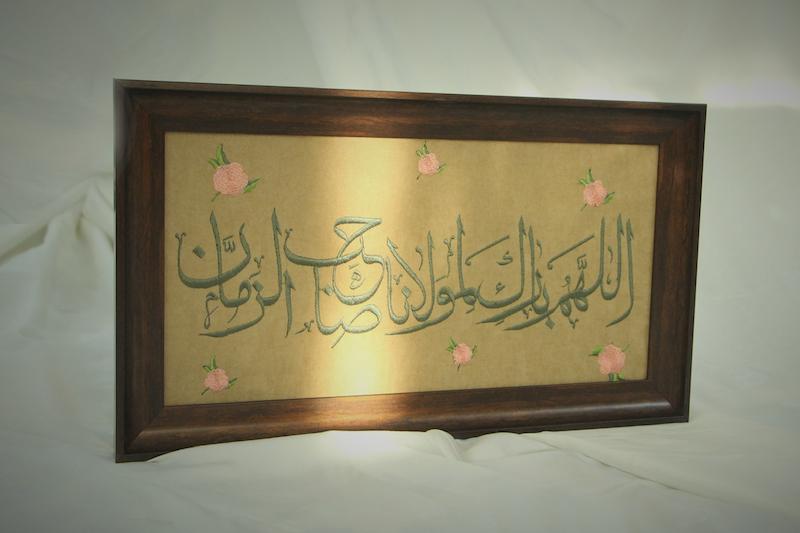 اللهم بارك لمولانا صاحب الزمان